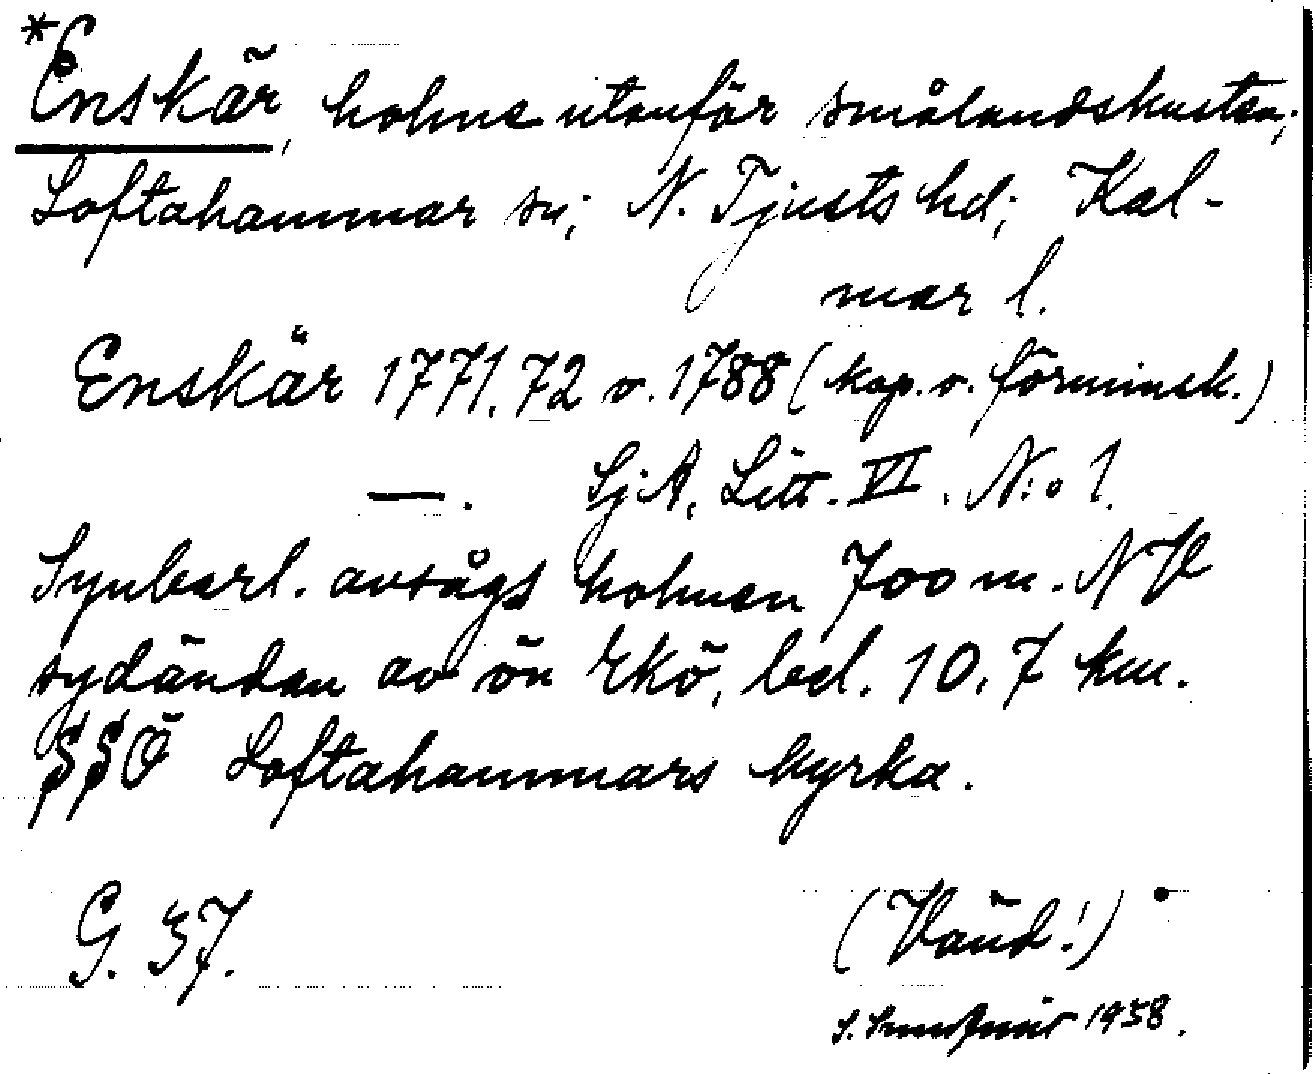 *Enskär, holme utanför smålandskusten;
Loftahammar sn; N. Tjusts hd; Kal-
mar l.
Enskär 1771.72 o. 1788 (kop. o. förminsk.)
—. SjA. Litt. VI. N:o 1.
Synbarl. avsågs holmen 700 m. NV
sydändan av ön Ekö, bel. 10,7 km.
SSÖ Loftahammars kyrka.
G. 37.
(Vänd!)
S. 1938.